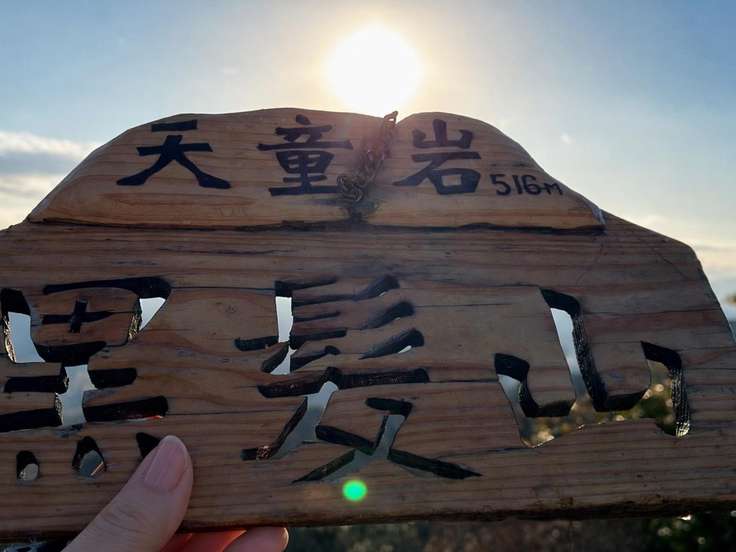 天童岩 516m
黒髪山